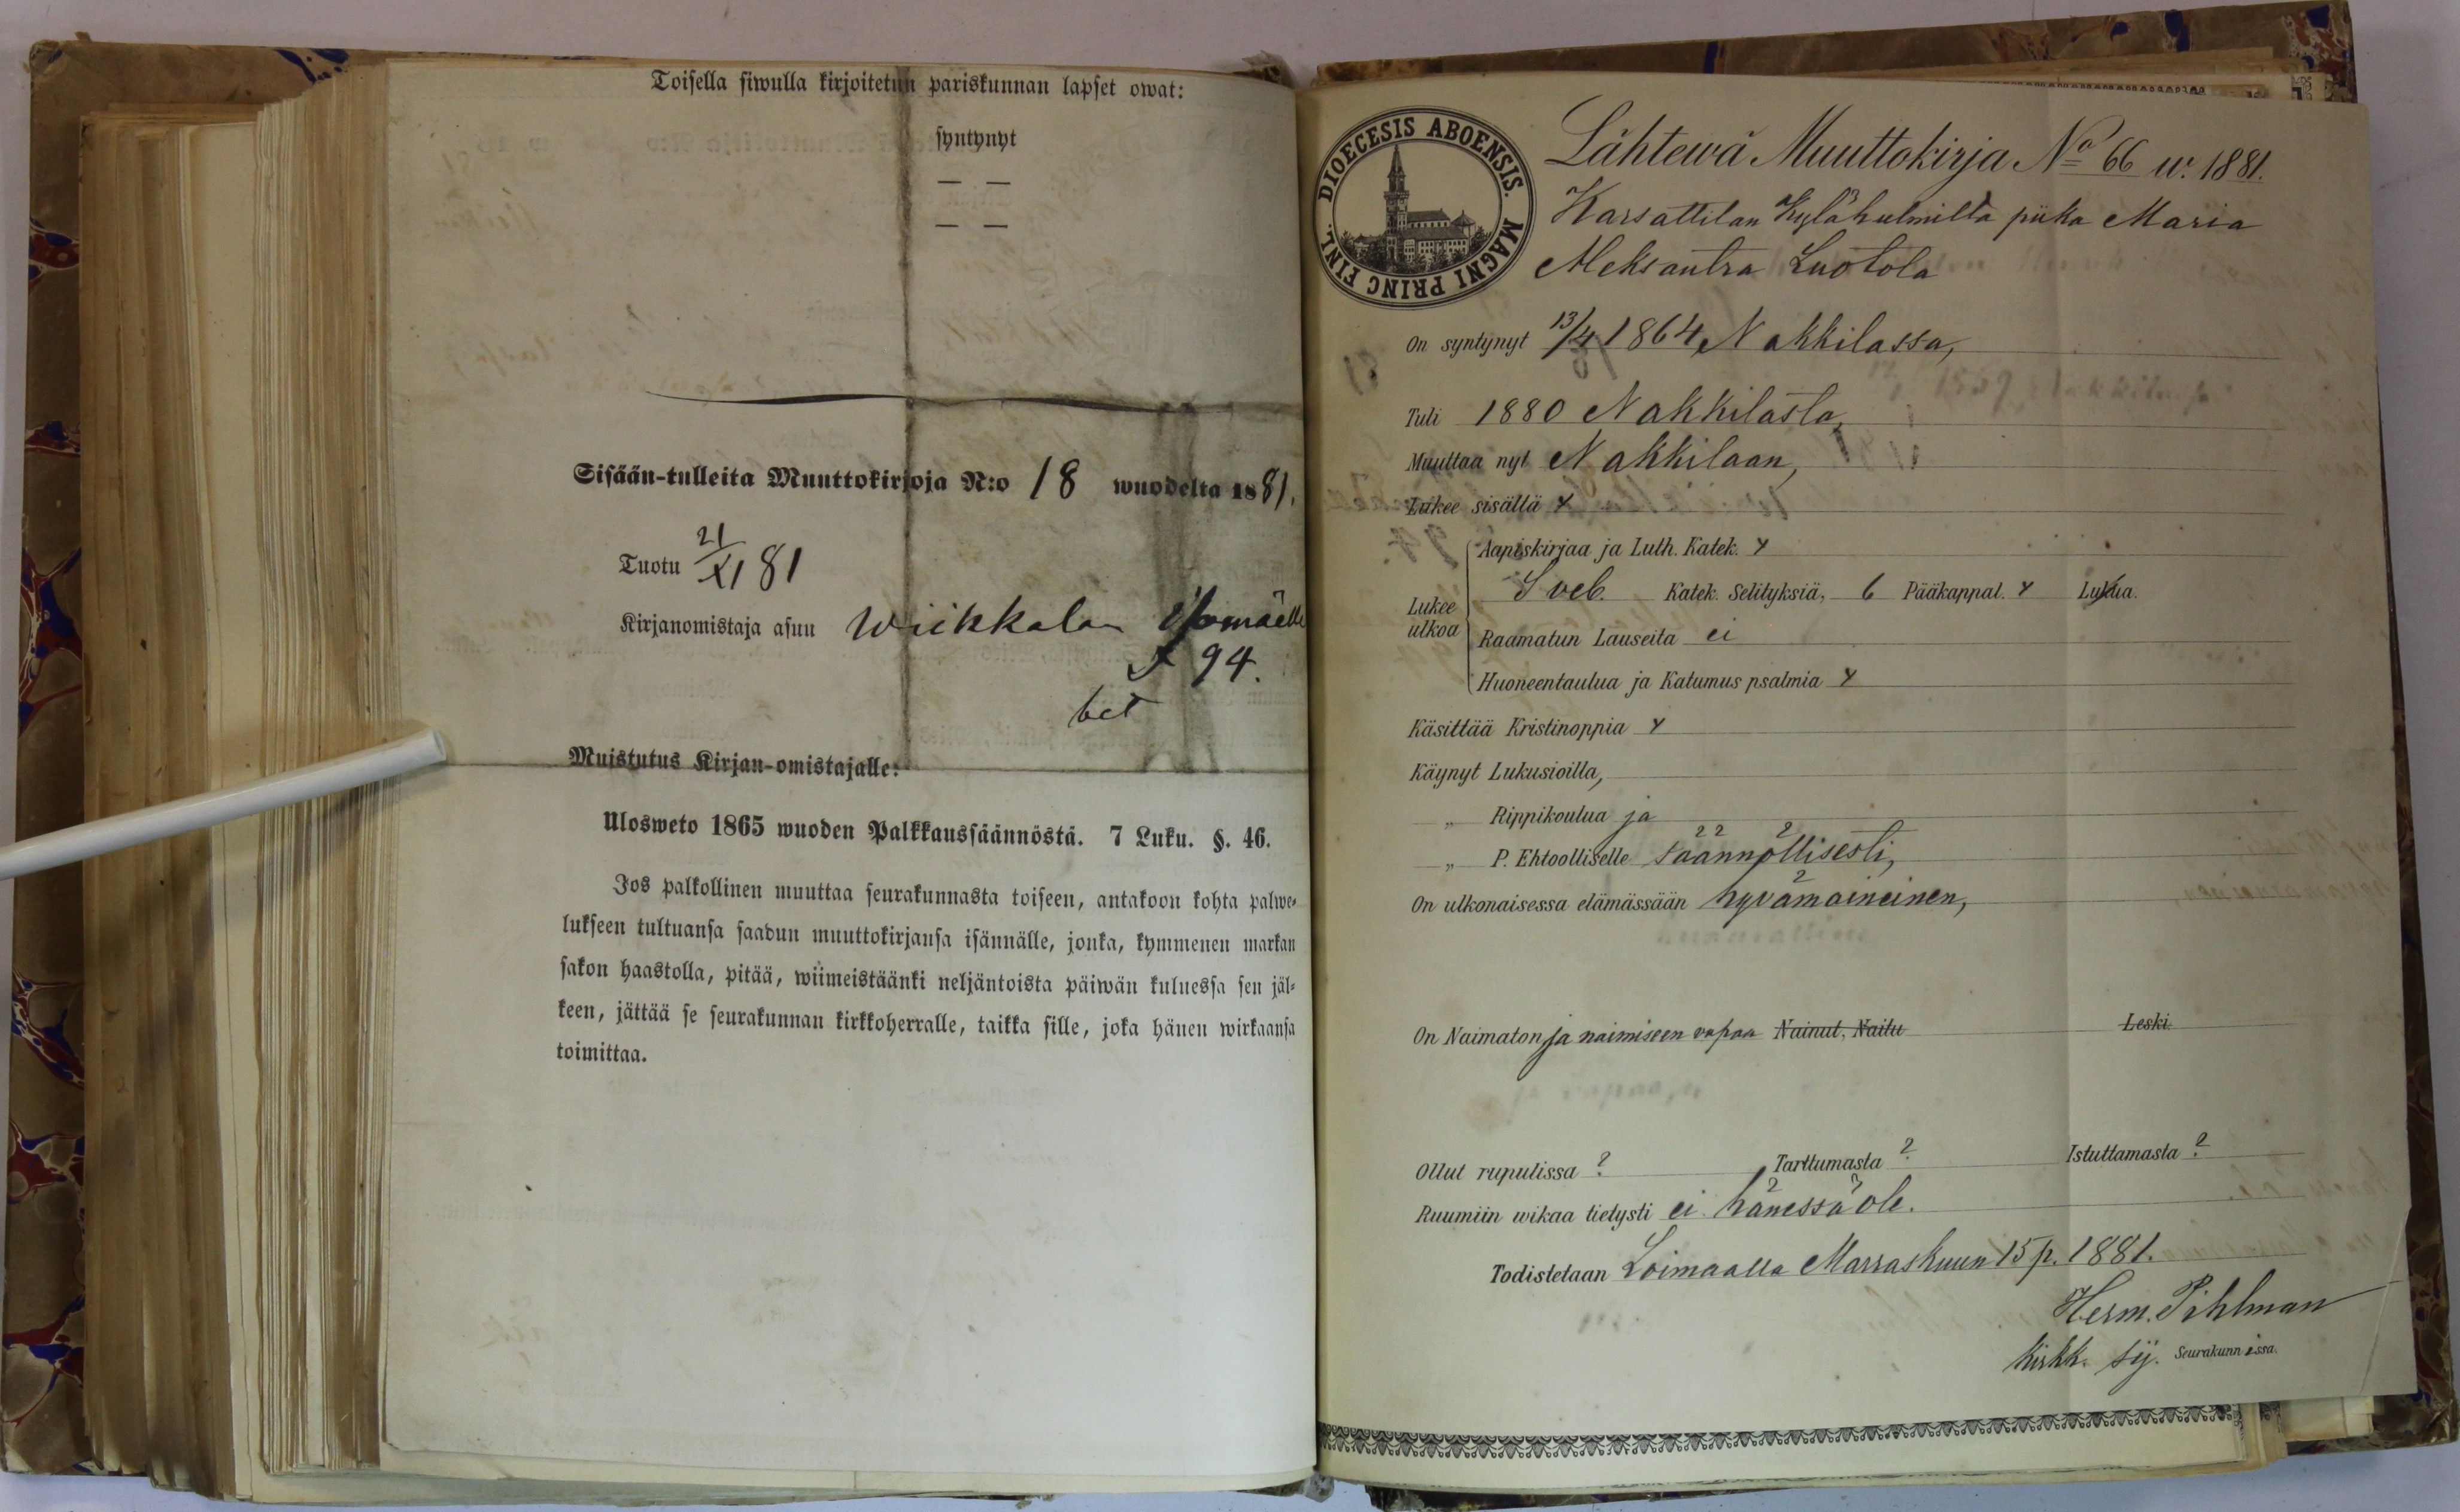 Toisella siwulla kirjoitetun pariskunnan lapset owat:
syntynyt
— —
— —
Sisään-tulleita Muuttokirjoja N:o 18 wuodelta 1881.
Tuotu 21/XI 81
Kirjanomistaja asuu Wiikkalan
94.
bet
Muistutus Kirjan-omistajalle:
Ulosweto 1865 wuoden Palkkaussäännöstä. 7 Luku. §. 46.
Jos palkollinen muuttaa seurakunnasta toiseen, antakoon kohta palwe-
lukseen tultuansa saadun muuttokirjansa isännälle, jonka, kymmenen markan
sakon haastolla, pitää, wiimeistäänki neljäntoista päiwän kuluessa sen jäl-
keen, jättää se seurakunnan kirkkoherralle, taikka sille, joka hänen wirkaansa
toimittaa.
DIOECESIS ABOENSIS. MAGNI PRINC FINL.
Lähtewä Muuttokirja No 66 w. 1881.
Karsattilan Kylähulmilta piika Maria
Aleksantra Luotola
On syntynyt 13/4 1864 Nakkilassa,
Tuli 1880 Nakkilasta,
Muuttaa nyt Nakkilaan,
Lukee sisältä x
Lukee ulkoa
Aapiskirjaa ja Luth. Katek. x
Sveb. Katek. Selityksiä, 6 Pääkappal. x Lukua.
Raamatun Lauseita ei
Huoneentaulua ja Katumus psalmia x
Käsittää Kristinoppia x
Käynyt Lukusioilla,
„ Rippikoulua ja
„ P. Ehtoolliselle säännöllisesti,
On ulkonaisessa elämässään hyvämaineinen,
On Naimaton ja naimiseen vapaa Nainut, Naitu Leski.
Ollut rupulissa ? Tarttumasta ? Istuttamasta ?
Ruumiin wikaa tietysti ei hänessä ole.
Todistetaan Loimaalla Marraskuun 15 p. 1881.
Herm. Pihlman
Kirkk. sij. Seurakunnissa.